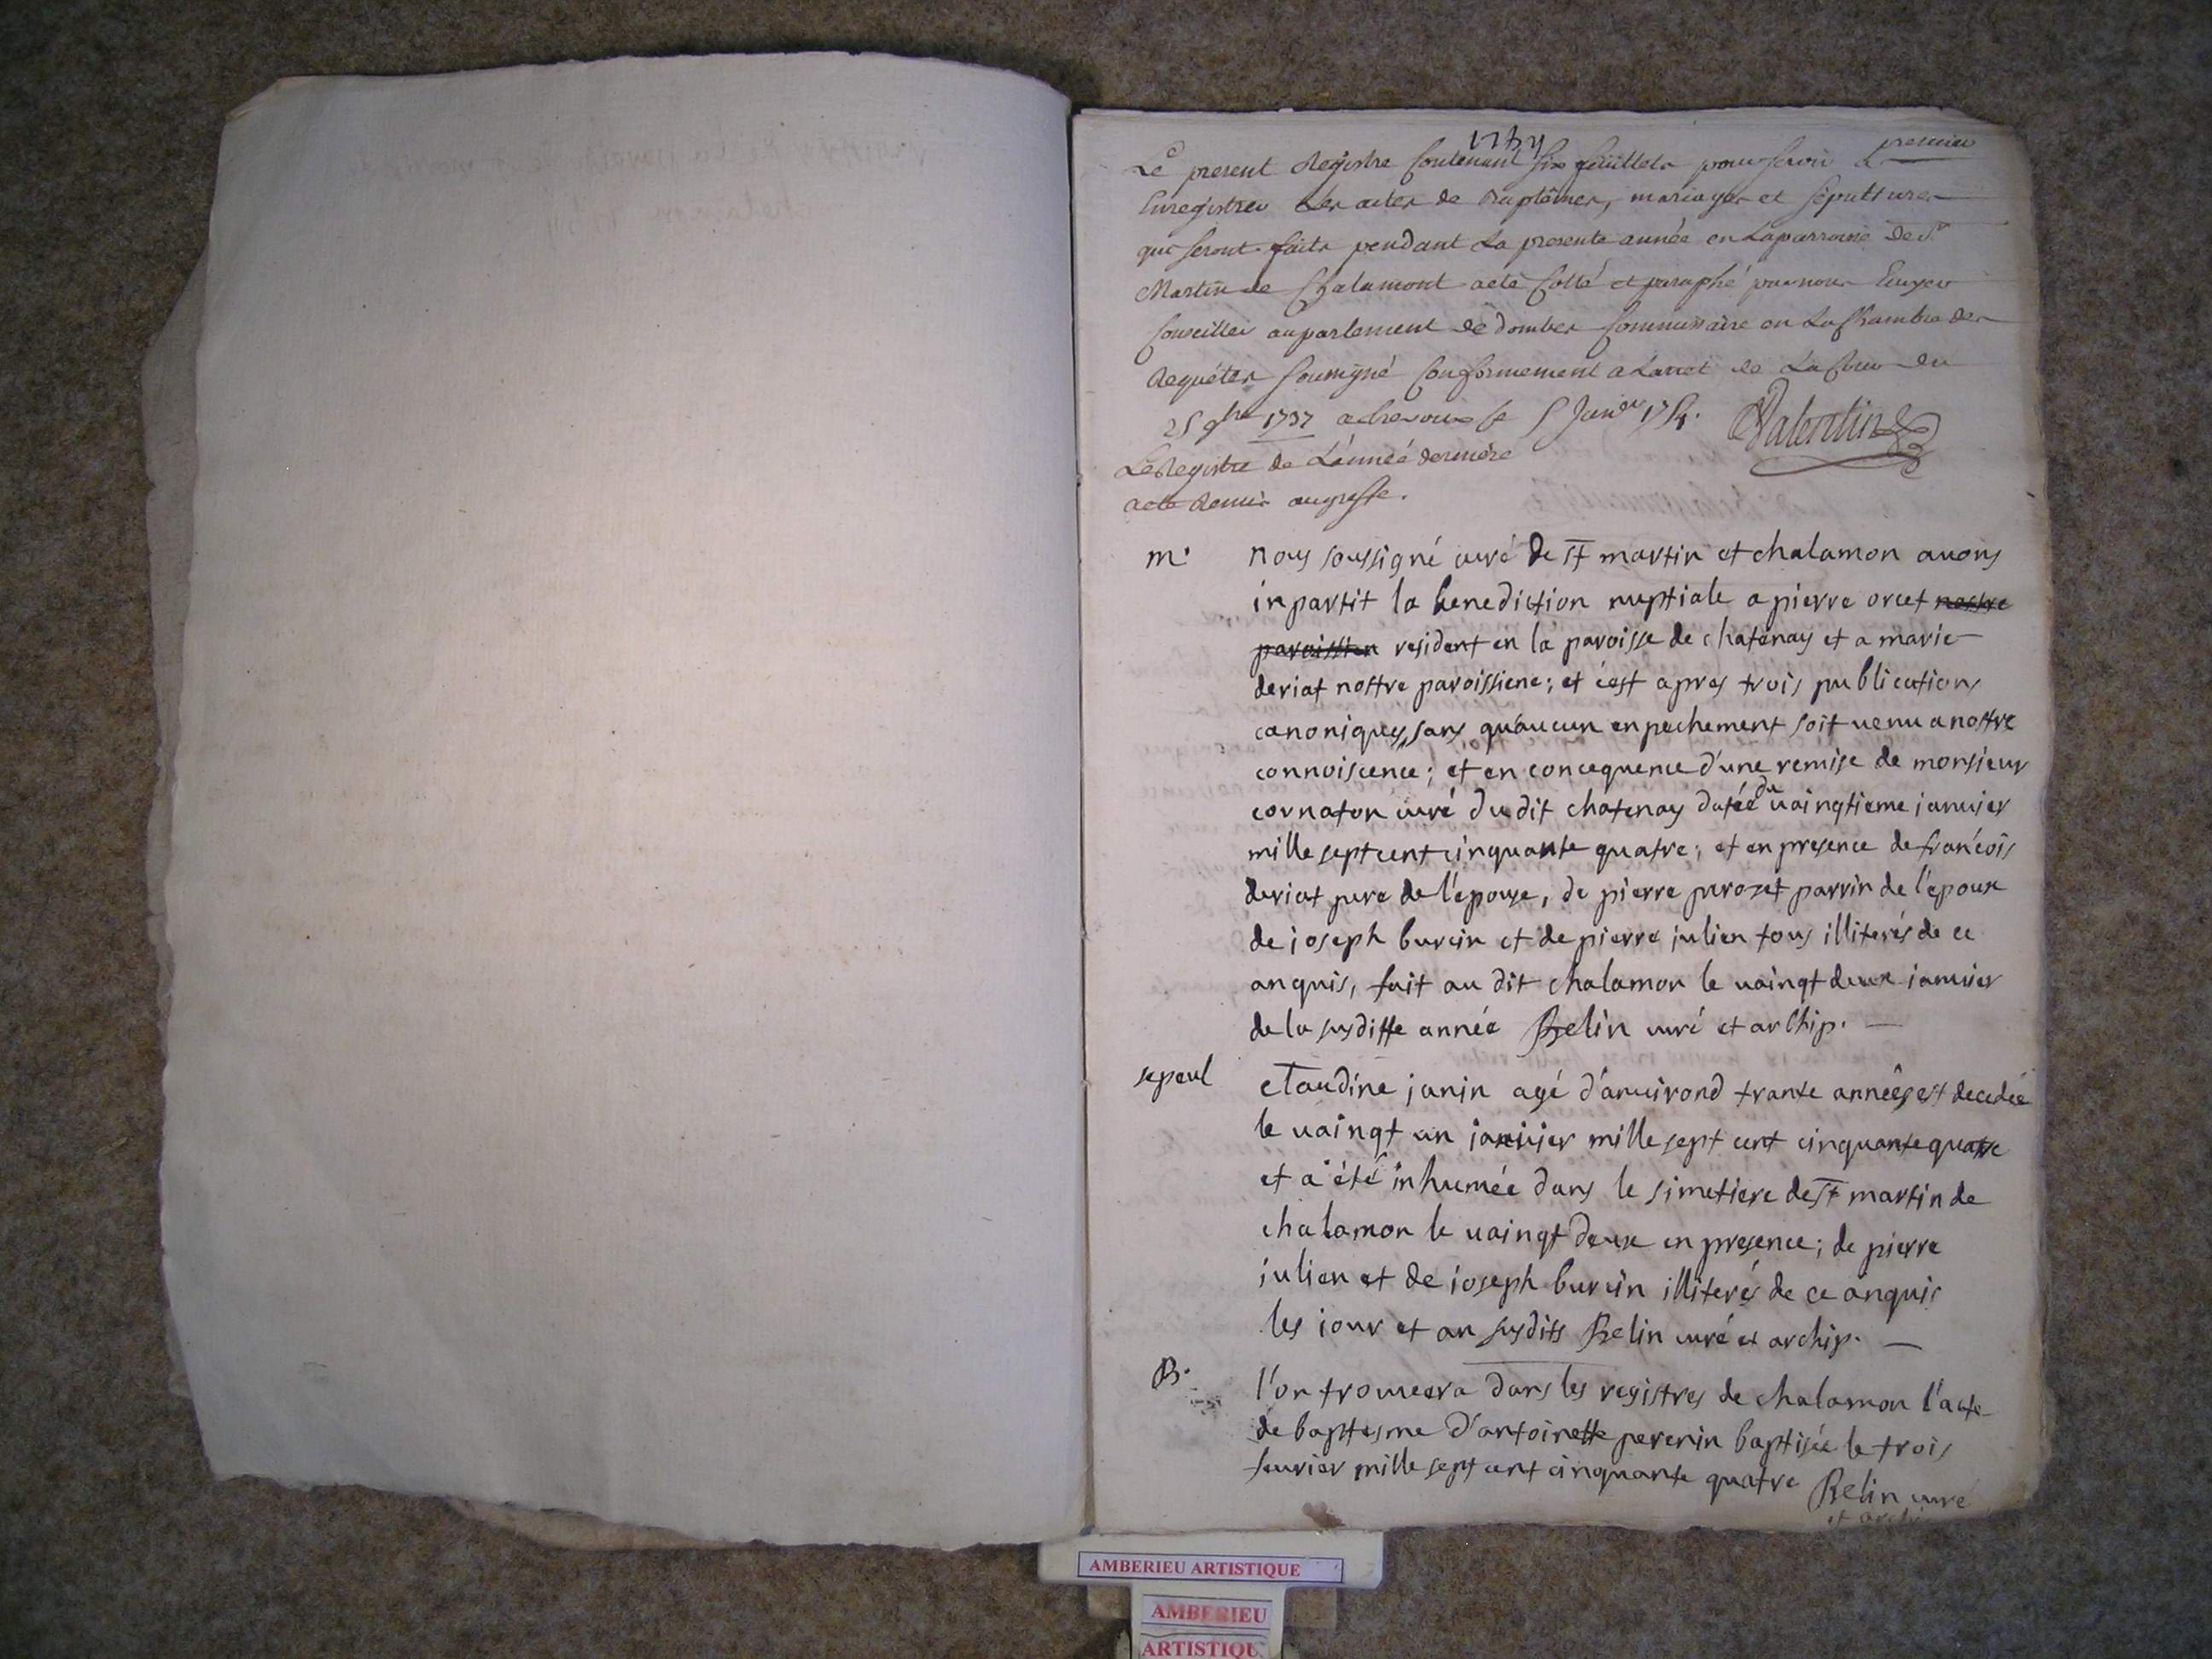 1754
premier
Le present Registre Contenant six feüillets pour servir a
Enregistrer Les actes de Baptêmes, mariages et sépultures
qui seront faits pendant La presente année en La parroisse de St
Martin de Chalamont a eté Cotté et paraphé par nous Ecuyer
Conseiller au parlement de dombes Commissaire en La Chambre des
Requétes soussigné Conformement a L'arret de La Cour du
25 9bre 1737 a trevoux le 5 Janer 1754. Valentin
Le Registre de L'année derniere
a eté Remis au greffe.
m. nous soussigné curé de St martin et chalamon avons
inpartit la benediction nuptiale a pierre orcet nostre
paroissien resident en la paroisse de chatenay et a marie
deriat nostre paroissiene; et c'est apres trois publications
canoniques, sans qu'aucun enpechement soit venu a nostre
connoiscence; et en concequence d'une remise de monsieur
cornaton curé du dit chatenay datée du vaingtieme janvier
mille sept cent cinquante quatre; et en presence de francois
deriat pere de l'epouse, de pierre perozet parrin de l'epoux
de joseph burcin et de pierre julien tous illiterés de ce
anquis, fait au dit chalamon le vaingt deux janvier
de la susditte année Belin curé et archip.
sepeul claudine janin agé d'anvirond trante années est decedée
le vaingt un janvier mille sept cent cinquante quatre
et a été inhumée dans le simetiere de St martin de
chalamon le vaingt deux en presence; de pierre
julien et de joseph burcin illiterés de ce anquis
les jour et an susdits Belin curé et archip.
B. l'on trouvera dans les registres de chalamon l'acte
de baptesme d'antoinette perenin baptisée le trois
feuvrier mille sept cent cinquante quatre Belin curé
et archi
AMBERIEU ARTISTIQUE
AMBERIEU
ARTISTIQU